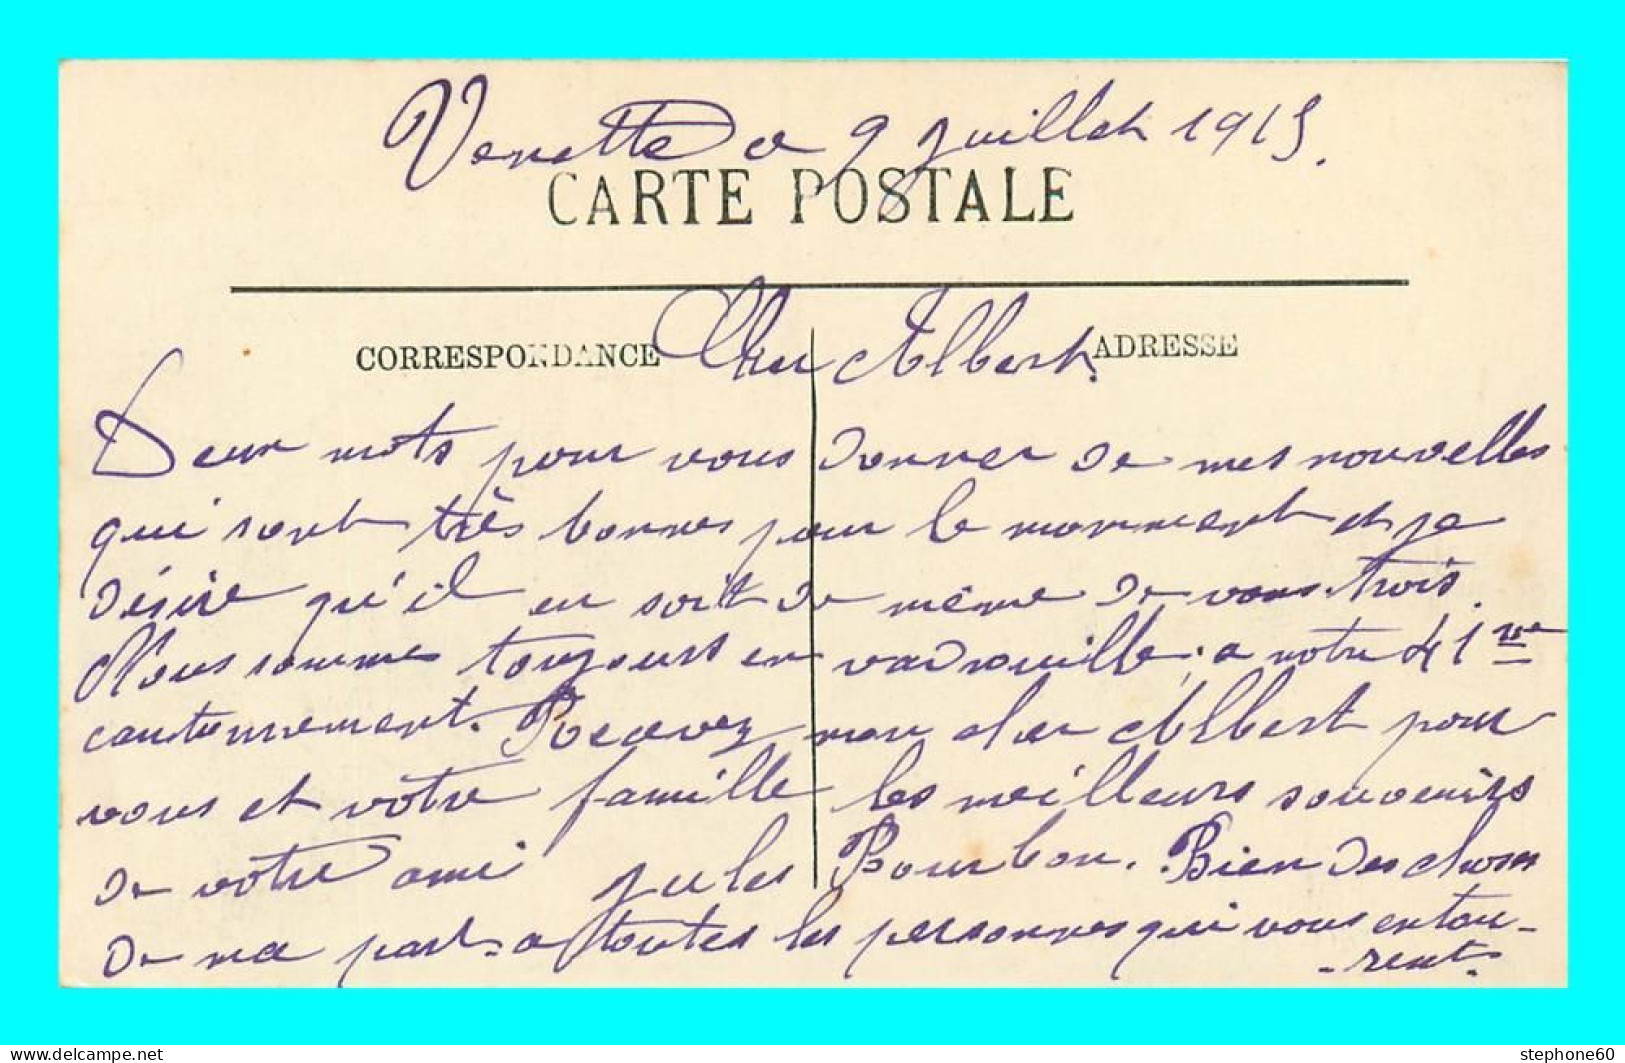 Venette le 9 Juillet 1915.
CARTE POSTALE
CORRESPONDANCE Cher Albert. ADRESSE
Deux mots pour vous donner de mes nouvelles
qui sont très bonnes pour le momment et je
désire qu'il en soit de même de vous trois.
Nous sommes toujours en vadrouille, a notre 41 me
cantonnement. Recevez mon cher Albert pour
vous et votre famille les meilleurs souvenirs
de votre ami Jules Bourbon. Bien des choses
de ma part a toutes les personnes qui vous entou-
-rent.
delcampe.net
stephone60